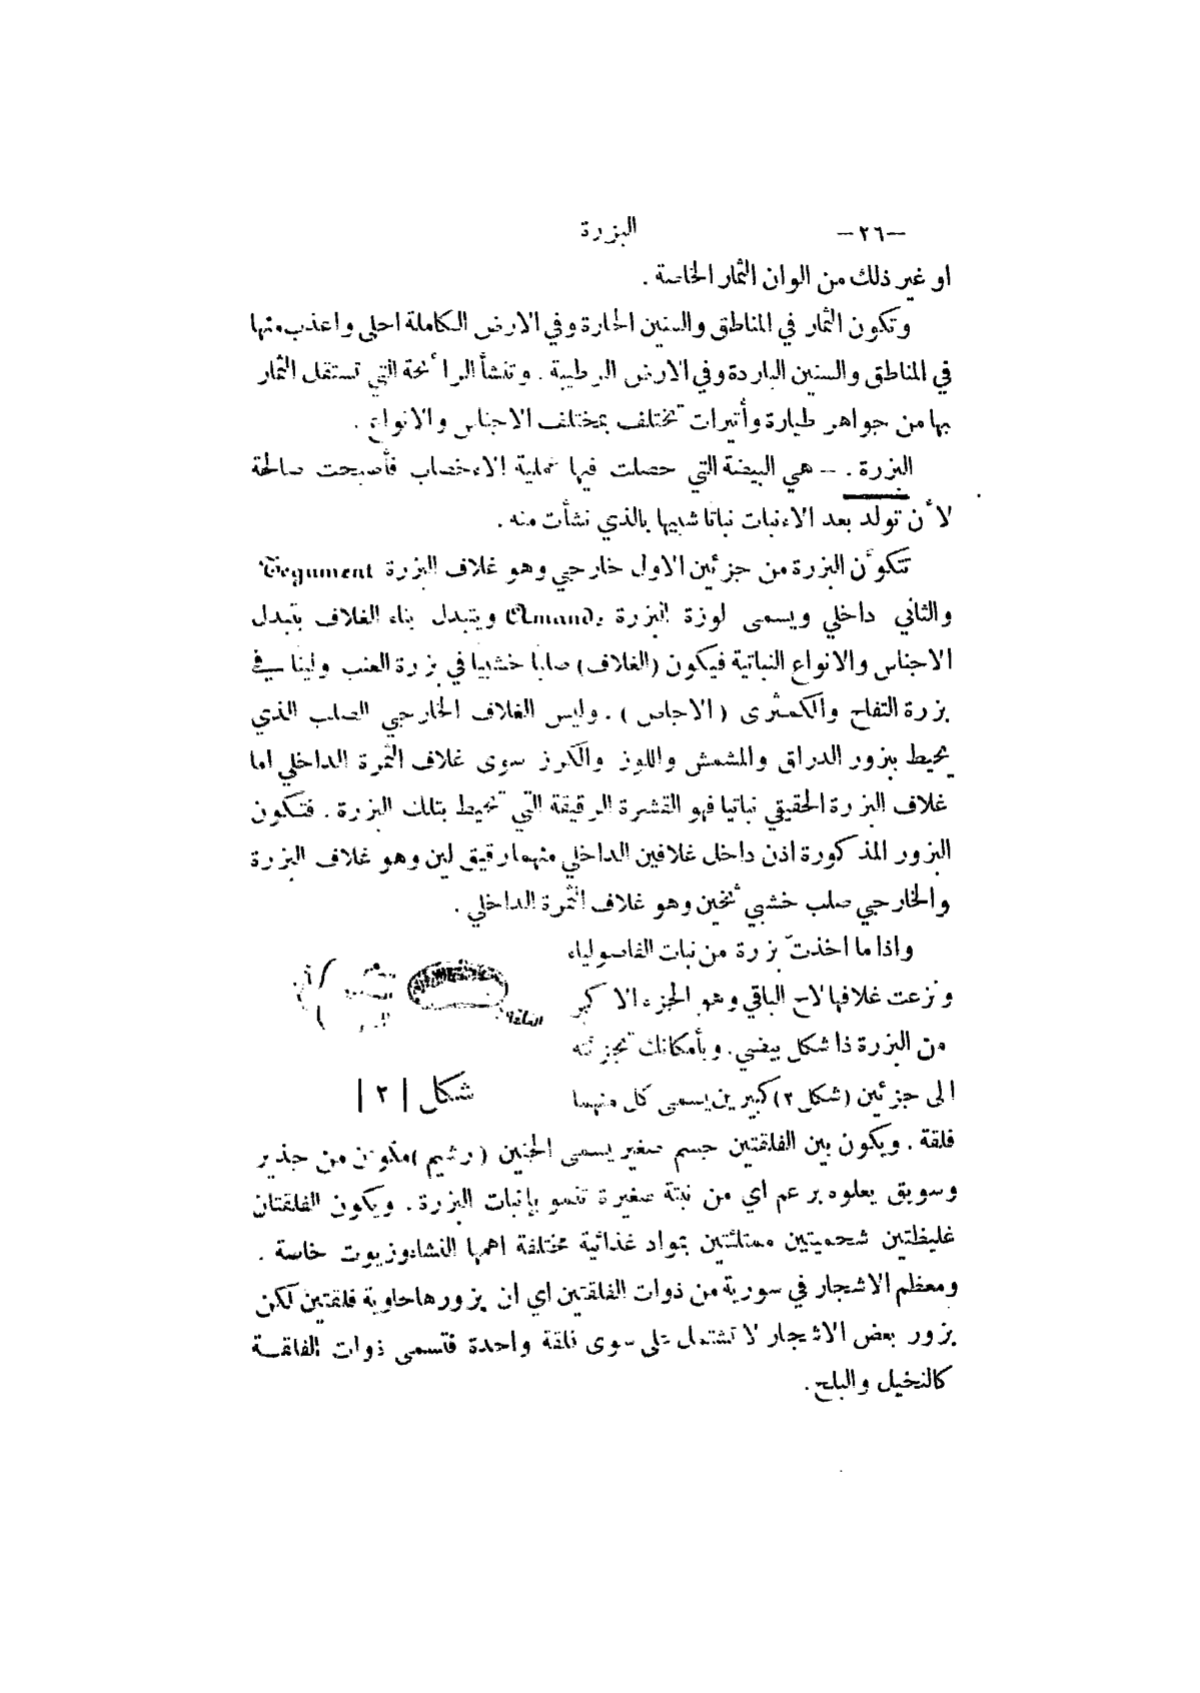 —٢٦— البزرة
او غير ذلك من الوان الثمار الخاصة .
وتكون الثمار في المناطق والسنين الحارة وفي الارض الكاملة احلى واعذب منها
في المناطق والسنين الباردة وفي الارض الرطيبة . وتنشأ الرائحة التي تستقل الثمار
بها من جواهر طيارة وأتيرات تختلف بمختلف الاجناس والانواع .
البزرة . — هي البيضة التي حصلت فيها عملية الاءخصاب فأصبحت صالحة
لأن تولد بعد الاءنبات نباتا شبيها بالذي نشأت منه .
تتكوَّن البزرة من جزئين الاول خارجي وهو غلاف البزرة Tegument
والثاني داخلي ويسمى لوزة البزرة Amande ويتبدل بناء الغلاف بتبدل
الاجناس والانواع النباتية فيكون (الغلاف) صلبا خشبيا في بزرة العنب ولينا في
بزرة التفاح والكمثرى ( الاجاص ) . وليس الغلاف الخارجي الصلب الذي
يحيط ببزور الدراق والمشمش واللوز والكرز سوى غلاف الثمرة الداخلي اما
غلاف البزرة الحقيقي نباتيا فهو القشرة الرقيقة التي تحيط بتلك البزرة . فتكون
البزور المذكورة اذن داخل غلافين الداخلي منهما رقيق لين وهو غلاف البزرة
والخارجي صلب خشبي ثخين وهو غلاف الثمرة الداخلي .
واذا ما اخذتّ بزرة من نبات الفاصولياء
ونزعت غلافها لاح الباقي وهو الجزء الاكبر
من البزرة ذا شكل بيضي . وبأمكانك تجزئته
الى جزئين (شكل ٢) كبيرين يسمى كل منهما
الفلقة
شكل | ٢ |
فلقة . ويكون بين الفلقتين جسم صغير يسمى الجنين ( رشيم ) مكوَّن من جذير
وسويق يعلوه برعم اي من نبتة صغيرة تنمو بإنبات البزرة . ويكون الفلقتان
غليظتين شحميتين ممتلئتين بمواد غذائية مختلفة اهمها النشا وزيوت خاصة .
ومعظم الاشجار في سورية من ذوات الفلقتين اي ان بزورها حاوية فلقتين لكن
بزور بعض الاشجار لا تشتمل على سوى فلقة واحدة فتسمى ذوات الفلقة
كالنخيل والبلح .